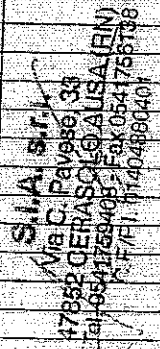 S.I.A. s.r.l.
Via C. Pavese, 33
47852 CERASOLO AUSA (RN)
Tel. 0541759408 - Fax 0541756188
F./P.I. 01404880401